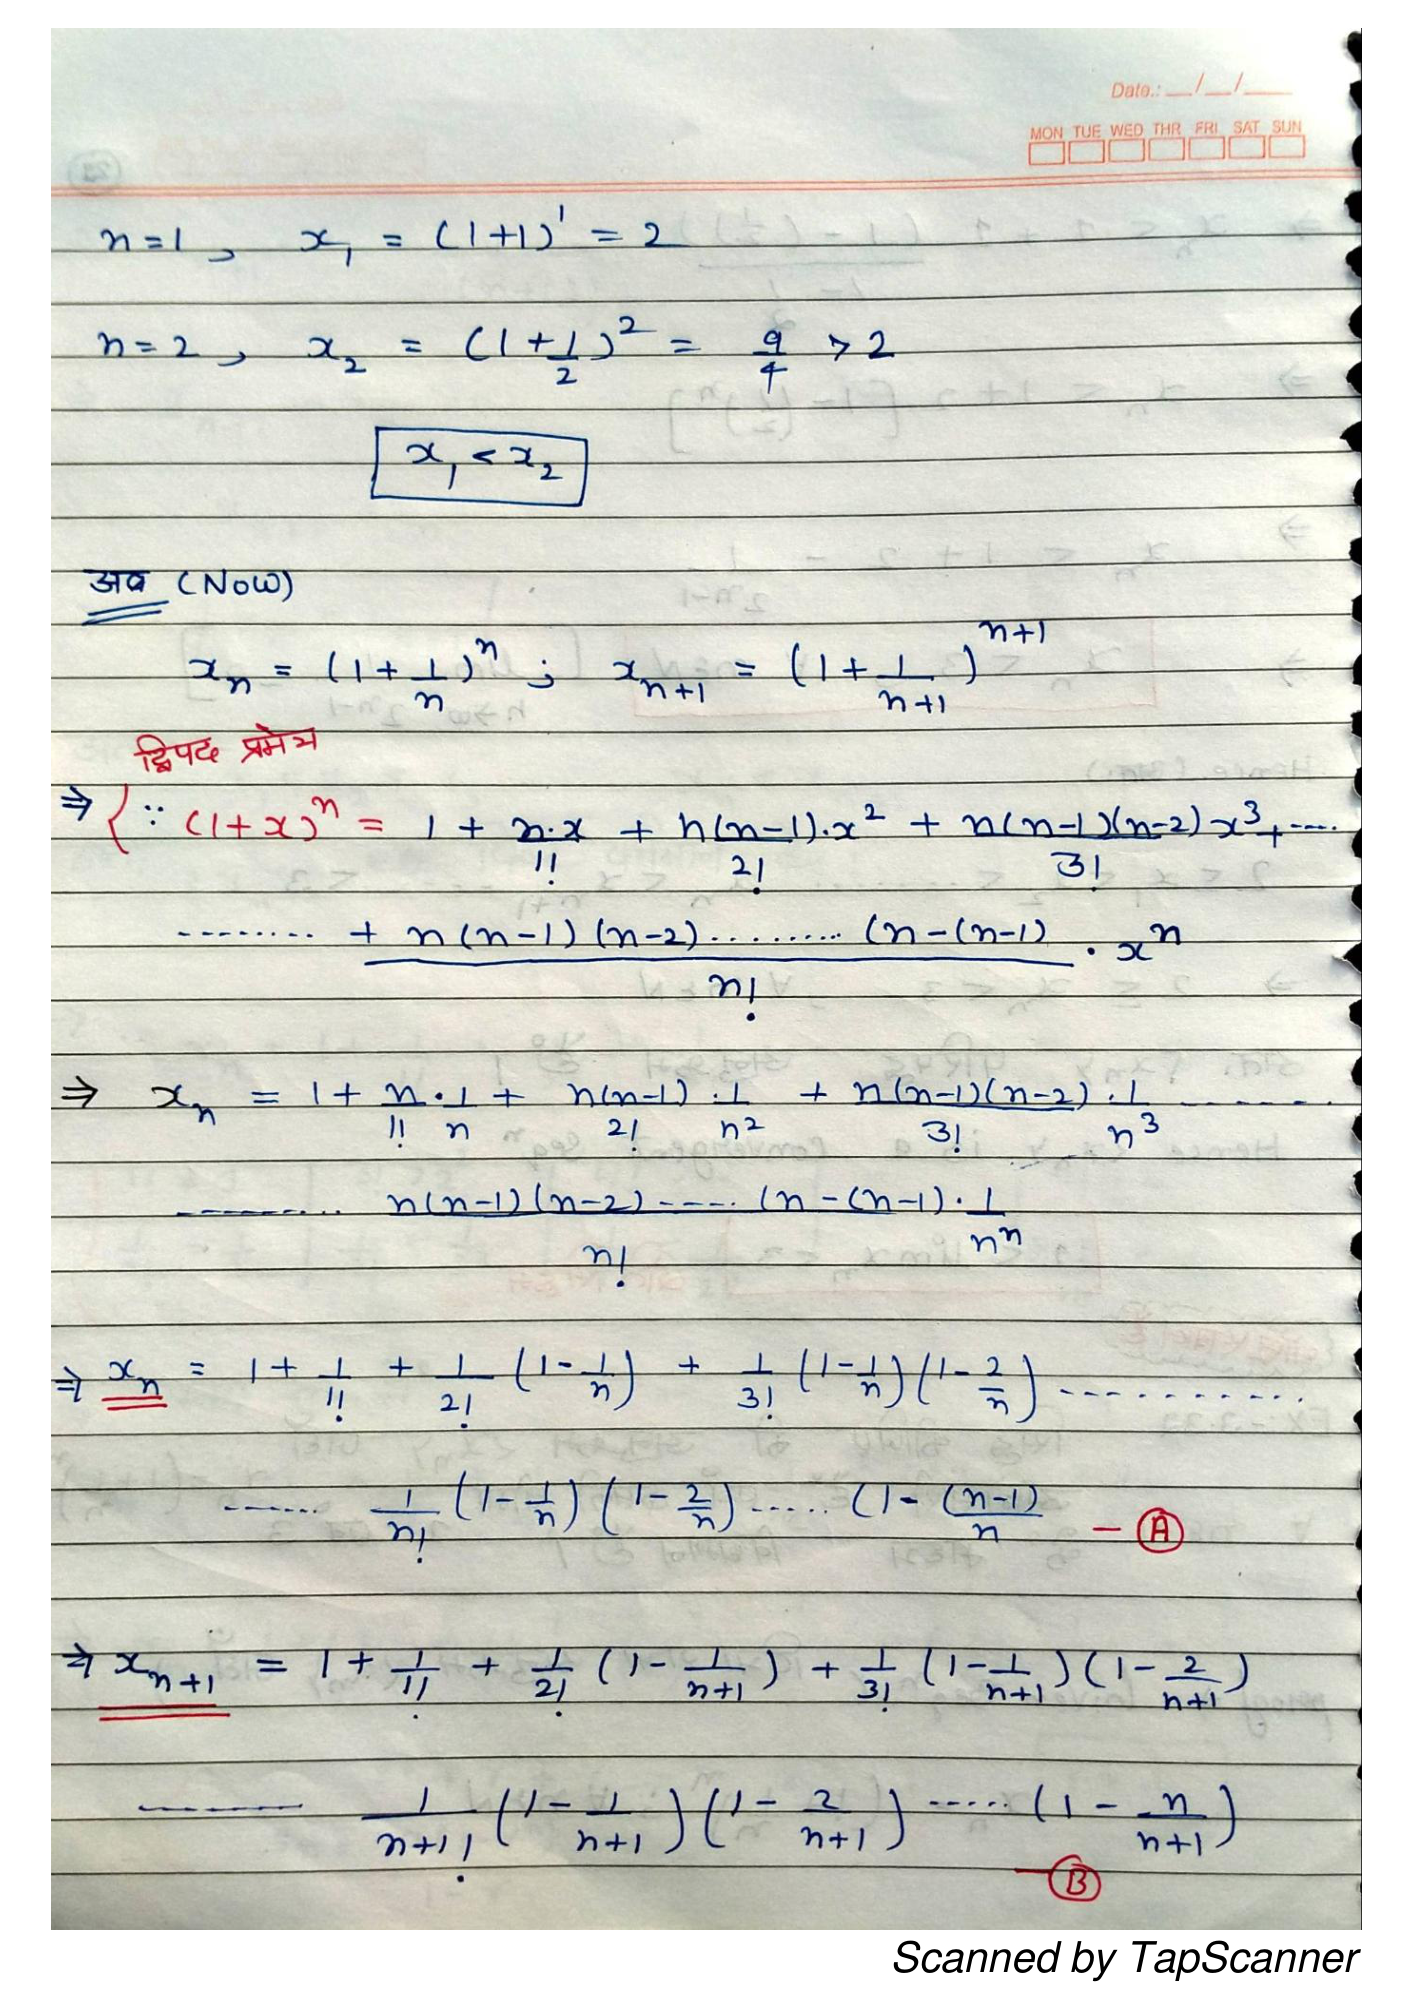 Date.: __/__/___
MON TUE WED THR FRI SAT SUN
n=1, x₁ = (1+1)¹ = 2
n=2, x₂ = (1+1/2)² = 9/4 > 2
x₁ < x₂
अब (Now)
xₙ = (1+1/n)ⁿ ; xₙ₊₁ = (1+1/(n+1))ⁿ⁺¹
द्विपद प्रमेय
⇒ { ∵ (1+x)ⁿ = 1 + n.x/1! + n(n-1).x²/2! + n(n-1)(n-2)x³/3! + ....
........ + n(n-1)(n-2)......... (n-(n-1)/n! . xⁿ
⇒ xₙ = 1 + n/1! . 1/n + n(n-1)/2! . 1/n² + n(n-1)(n-2)/3! . 1/n³ .......
......... n(n-1)(n-2)..... (n-(n-1)/n! . 1/nⁿ
⇒ xₙ = 1 + 1/1! + 1/2! (1-1/n) + 1/3! (1-1/n)(1-2/n) ..........
...... 1/n! (1-1/n)(1-2/n)..... (1-(n-1)/n — Ⓐ
⇒ xₙ₊₁ = 1 + 1/1! + 1/2! (1-1/(n+1)) + 1/3! (1-1/(n+1))(1-2/(n+1))
....... 1/(n+1!) (1-1/(n+1))(1-2/(n+1)) ..... (1-n/(n+1))
— Ⓑ
Scanned by TapScanner